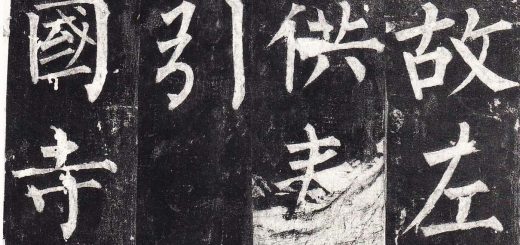 故左
供奉
引
國寺